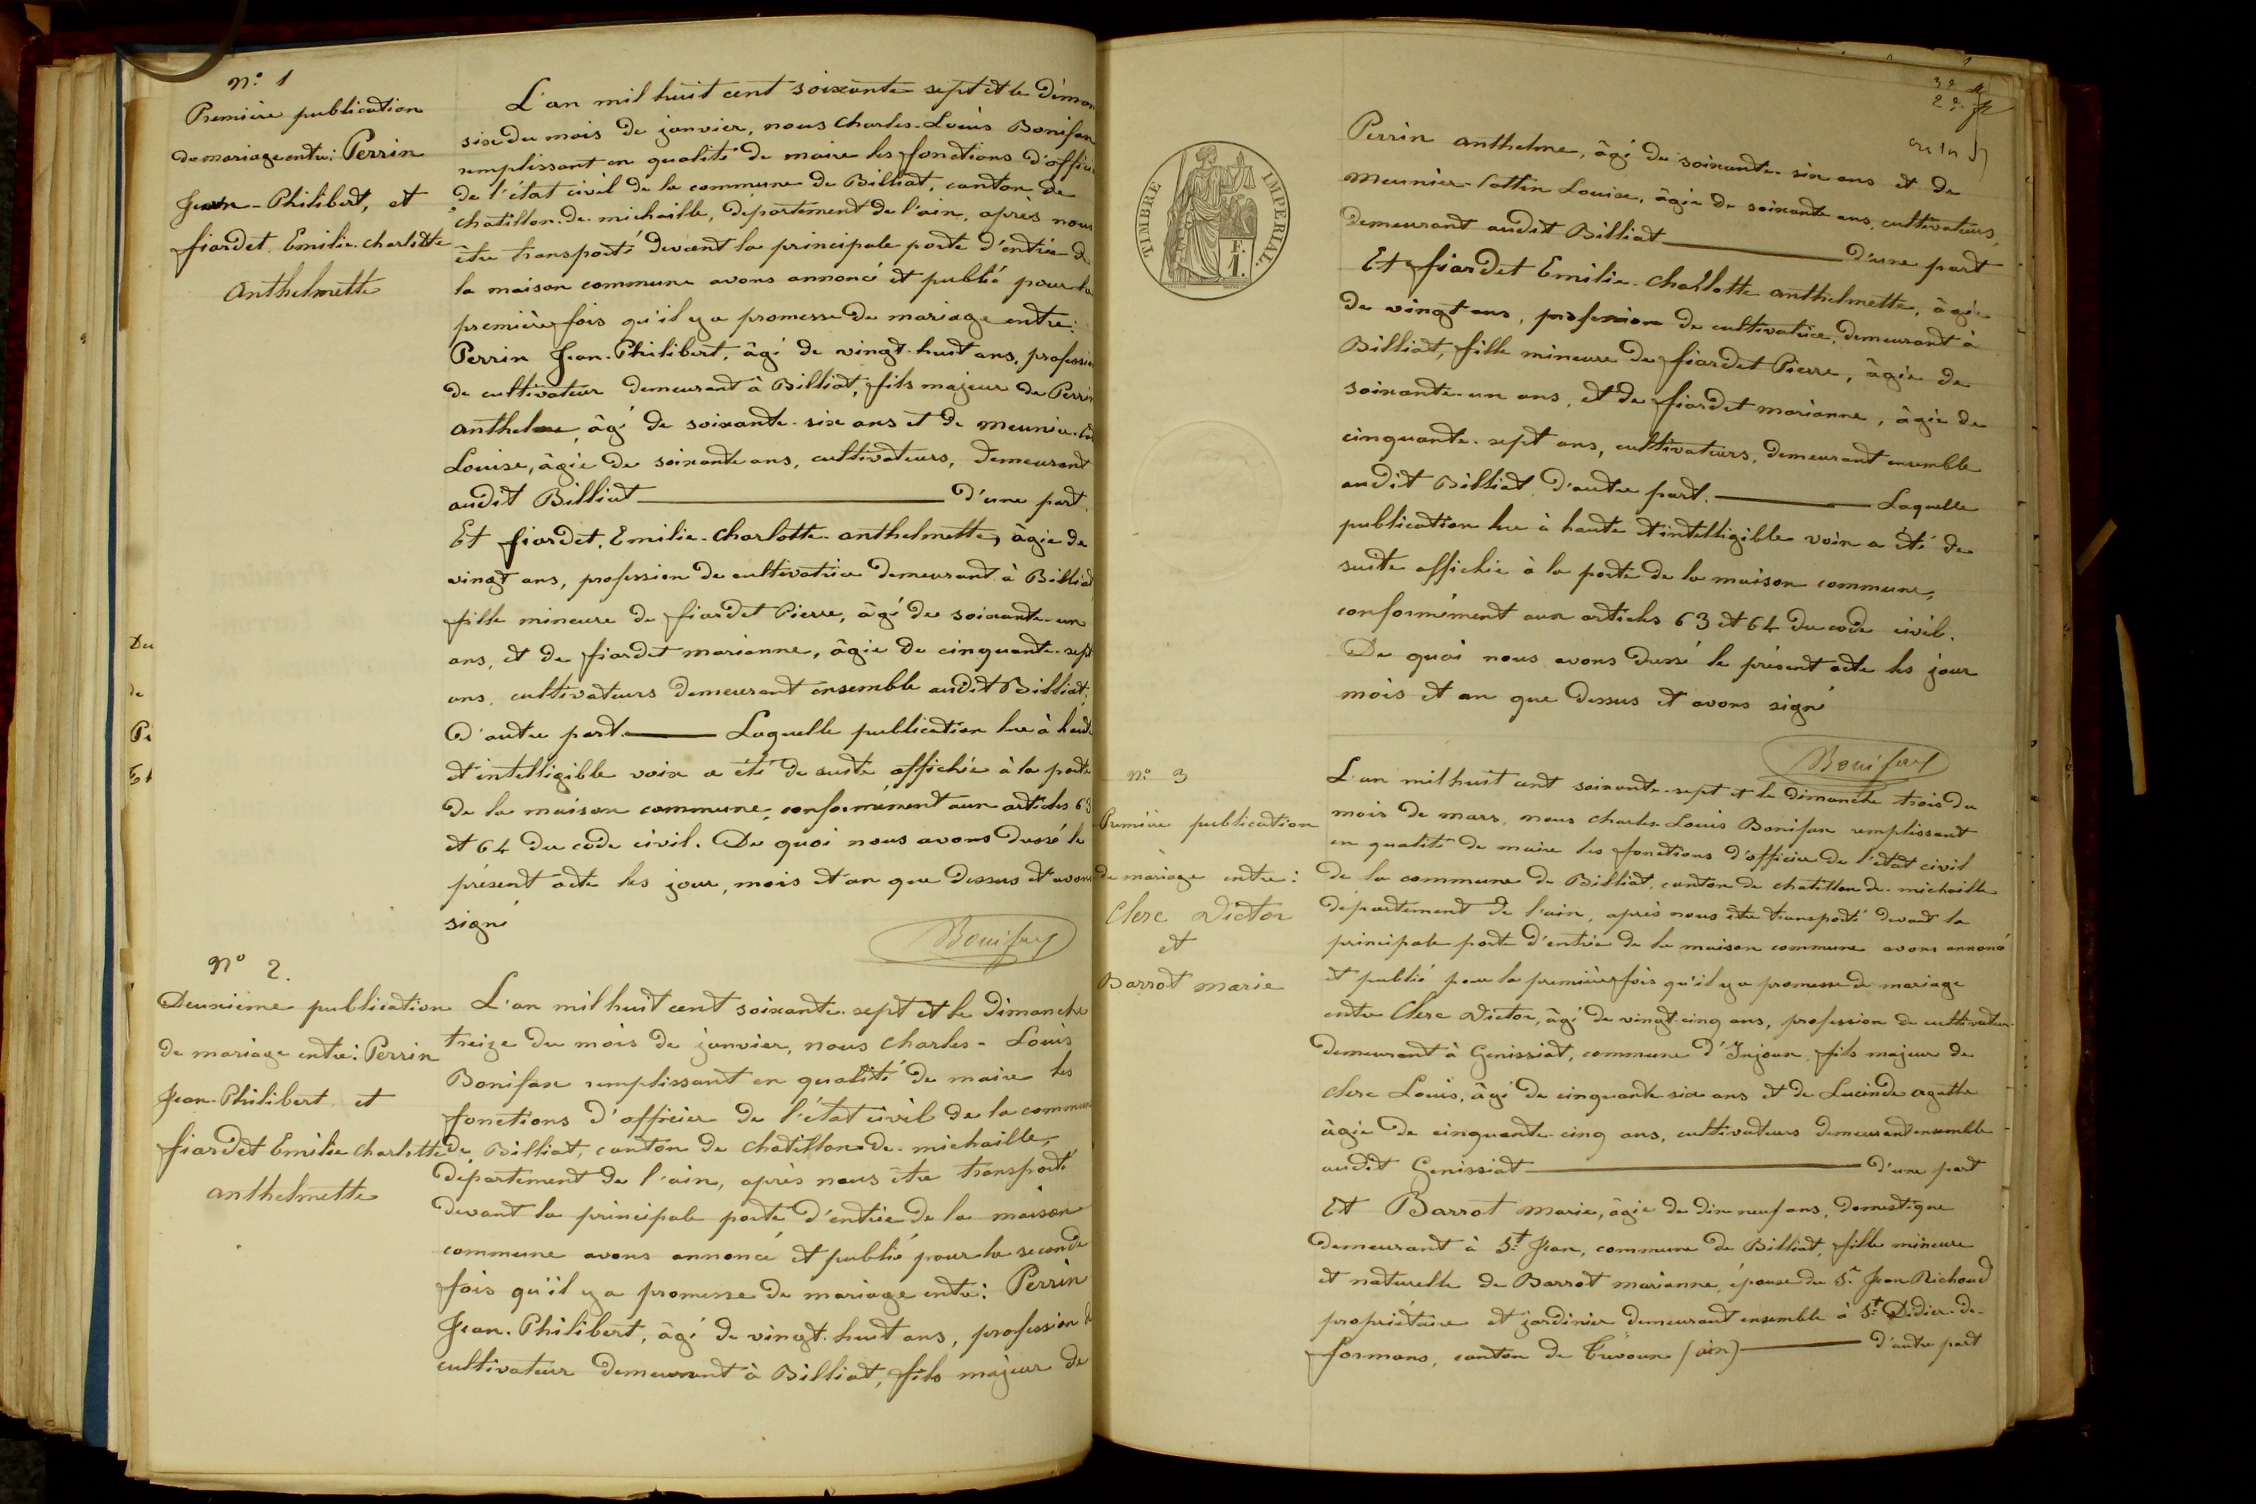 N.° 1
Première publication
de mariage entre: Perrin
Jean-Philibert, et
fiardet Emilie-charlotte
Anthelmette
L'an mil huit cent soixante sept et le Diman
six du mois de janvier, nous Charles-Louis Bonifax
remplissant en qualité de maire les fonctions d'offici
de l'état civil de la commune de Billiat, canton de
chatillon-de-michaille, département de l'ain, après nous
être transporté devant la principale porte d'entrée de
la maison commune avons annoncé et publié pour la
première fois qu'il y a promesse de mariage entre:
Perrin Jean-Philibert, âgé de vingt-huit ans, profession
de cultivateur demeurant à Billiat, fils majeur de Perrin
Anthelme, âgé de soixante-six ans et de Meunier
Louise, âgée de soixante ans, cultivateurs, demeurant
audit Billiat d'une part.
Et fiardet, Emilie-charlotte-anthelmette, âgée de
vingt ans, profession de cultivatrice demeurant à Billiat
fille mineure de fiardet Pierre, âgé de soixante-un
ans, et de fiardet marianne, âgée de cinquante-sept
ans, cultivateurs demeurant ensemble audit Billiat,
D'autre part. Laquelle publication lue à haute
et intelligible voix a été de suite affichée à la porte
de la maison commune, conformément aux articles 63
et 64 du code civil. De quoi nous avons dressé le
présent acte les jour, mois et an que dessus et avons
signé
Bonifax
N° 2.
Deuxième publication
de mariage entre: Perrin
Jean-Philibert et
fiardet Emilie charlotte
anthelmette
L'an mil huit cent soixante-sept et le dimanche
treize du mois de janvier, nous Charles-Louis
Bonifax remplissant en qualité de maire les
fonctions d'officier de l'état civil de la commune
de Billiat, canton de chatillon-de-michaille,
département de l'ain, après nous être transporté
devant la principale porte d'entrée de la maison
commune avons annoncé et publié pour la seconde
fois qu'il y a promesse de mariage entre: Perrin
Jean-Philibert, âgé de vingt-huit ans, profession de
cultivateur demeurant à Billiat, fils majeur de
TIMBRE IMPERIAL.
F.
1.
Perrin anthelme, âgé de soixante-six ans et de
Meunier-Cottin Louise, âgée de soixante ans, cultivateurs,
demeurant audit Billiat d'une part
Et fiardet Emilie-Charlotte anthelmette, âgée
de vingt ans, profession de cultivatrice, demeurant à
Billiat, fille mineure de fiardet Pierre, âgée de
soixante-un ans, et de fiardet marianne, âgée de
cinquante-sept ans, cultivateurs, demeurant ensemble
audit Billiat, d'autre part. Laquelle
publication lue à haute et intelligible voix a été de
suite affichée à la porte de la maison commune,
conformément aux articles 63 et 64 du code civil.
De quoi nous avons dressé le présent acte les jour
mois et an que dessus et avons signé
Bonifax
N.° 3
Première publication
de mariage entre:
Clerc Victor
et
Barrot marie
L'an mil huit cent soixante-sept et le dimanche trois du
mois de mars, nous charles-Louis Bonifax remplissant
en qualité de maire les fonctions d'officier de l'état civil
de la commune de Billiat, canton de chatillon-de-michaille
département de l'ain, après nous être transporté devant la
principale porte d'entrée de la maison commune avons annoncé
et publié pour la première fois qu'il y a promesse de mariage
entre Clerc Victor, âgé de vingt-cinq ans, profession de cultivateur
demeurant à Genissiat, commune d'Injoux, fils majeur de
Clerc Louis, âgé de cinquante-six ans et de Lucinde Agathe
âgée de cinquante-cinq ans, cultivateurs demeurant ensemble
audit Genissiat d'une part
Et Barrot marie, âgée de dix neuf ans, domestique
demeurant à St Jean, commune de Billiat, fille mineure
et naturelle de Barrot marianne, épouse du Sr Jean Richoud
propriétaire et jardinier demeurant ensemble à St Didier-de-
formans, canton de Trévoux (ain) d'autre part